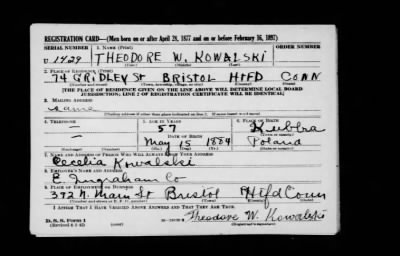 REGISTRATION CARD—(Men born on or after April 28, 1877 and on or before February 16, 1897)
SERIAL NUMBER 1. NAME (Print) ORDER NUMBER
U 1429 THEODORE W. KOWALSKI
2. PLACE OF RESIDENCE (Print)
74 GRIDLEY ST BRISTOL HTFD CONN
[THE PLACE OF RESIDENCE GIVEN ON THE LINE ABOVE WILL DETERMINE LOCAL BOARD
JURISDICTION; LINE 2 OF REGISTRATION CERTIFICATE WILL BE IDENTICAL]
3. MAILING ADDRESS
Same
[Mailing address if other than place indicated on line 2. If same insert word same]
4. TELEPHONE 5. AGE IN YEARS 6. PLACE OF BIRTH
57
DATE OF BIRTH
May 15 1884 Poland
7. NAME AND ADDRESS OF PERSON WHO WILL ALWAYS KNOW YOUR ADDRESS
Cecelia Kowalski
8. EMPLOYER'S NAME AND ADDRESS
E. Ingraham Co
9. PLACE OF EMPLOYMENT OR BUSINESS
392 N. Main St Bristol Htfd Conn
I AFFIRM THAT I HAVE VERIFIED ABOVE ANSWERS AND THAT THEY ARE TRUE.
D. S. S. Form 1 Theodore W. Kowalski
(Registrant's signature)